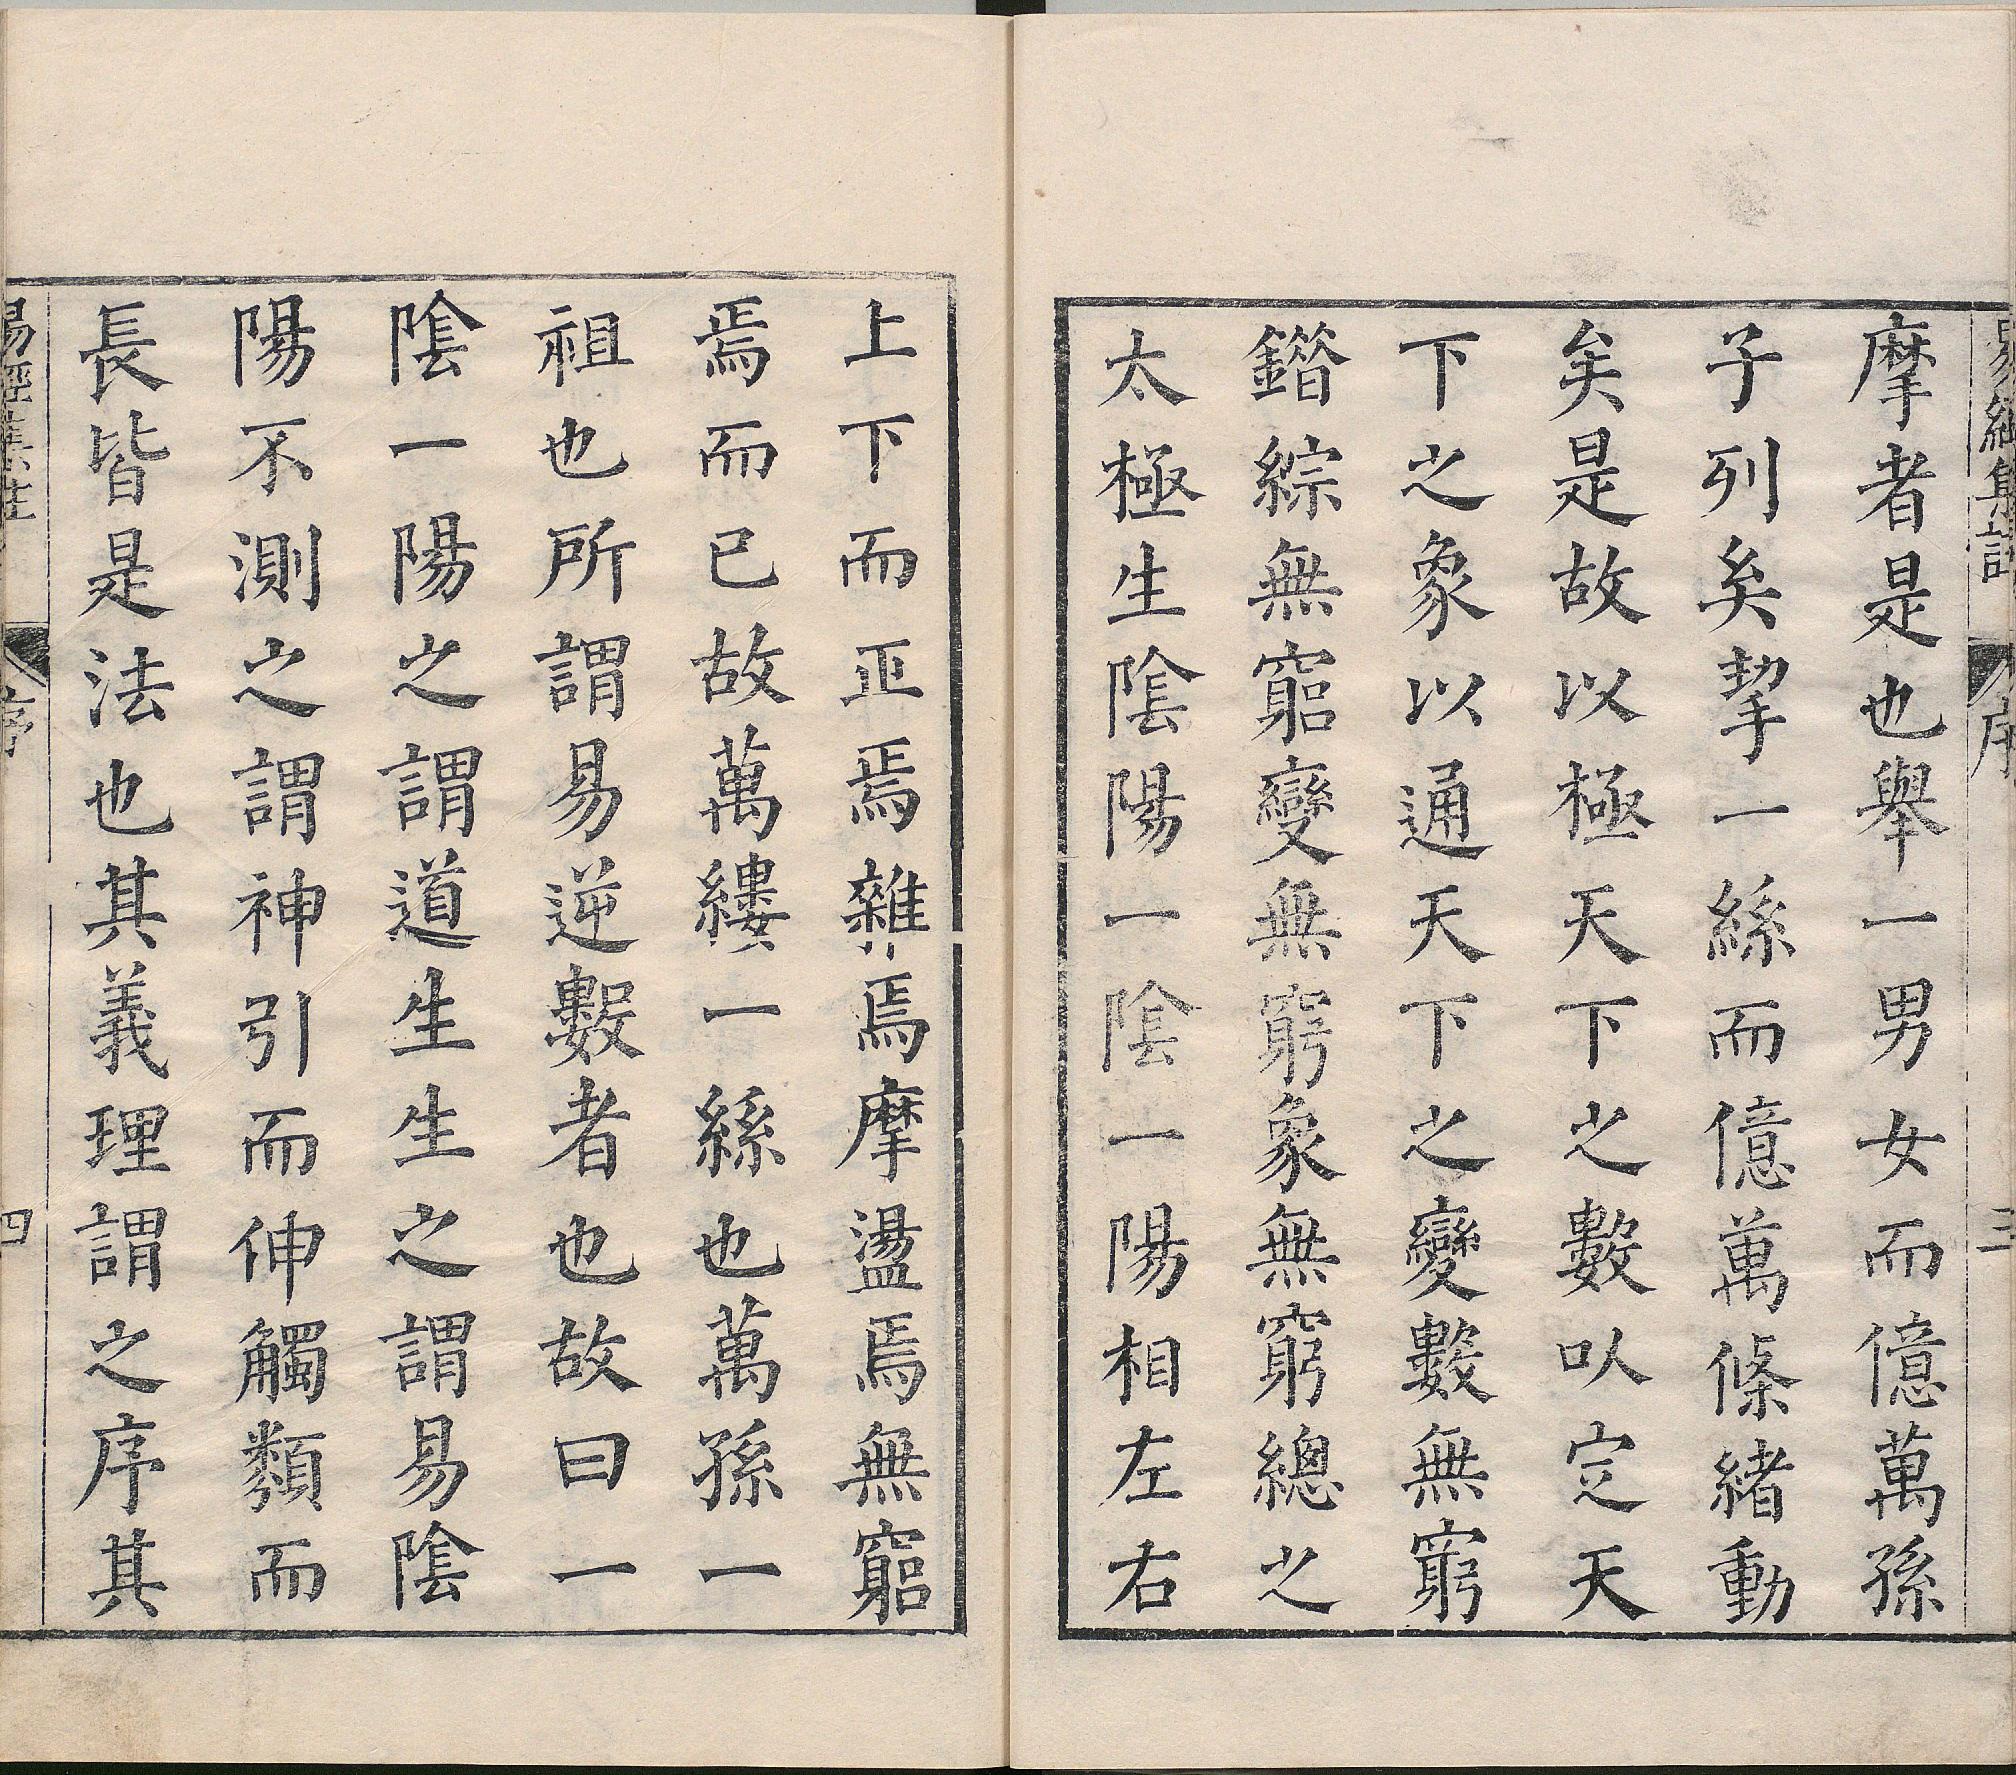 易經集註 序 三
摩者是也舉一男女而億萬孫
子列矣挈一絲而億萬條緒動
矣是故以極天下之數以定天
下之象以通天下之變數無窮
錯綜無窮變無窮象無窮總之
太極生陰陽一陰一陽相左右
上下而正焉雜焉摩盪焉無窮
焉而已故萬縷一絲也萬孫一
祖也所謂易逆數者也故曰一
陰一陽之謂道生生之謂易陰
陽不測之謂神引而伸觸類而
長皆是法也其義理謂之序其
易經集註 序 四